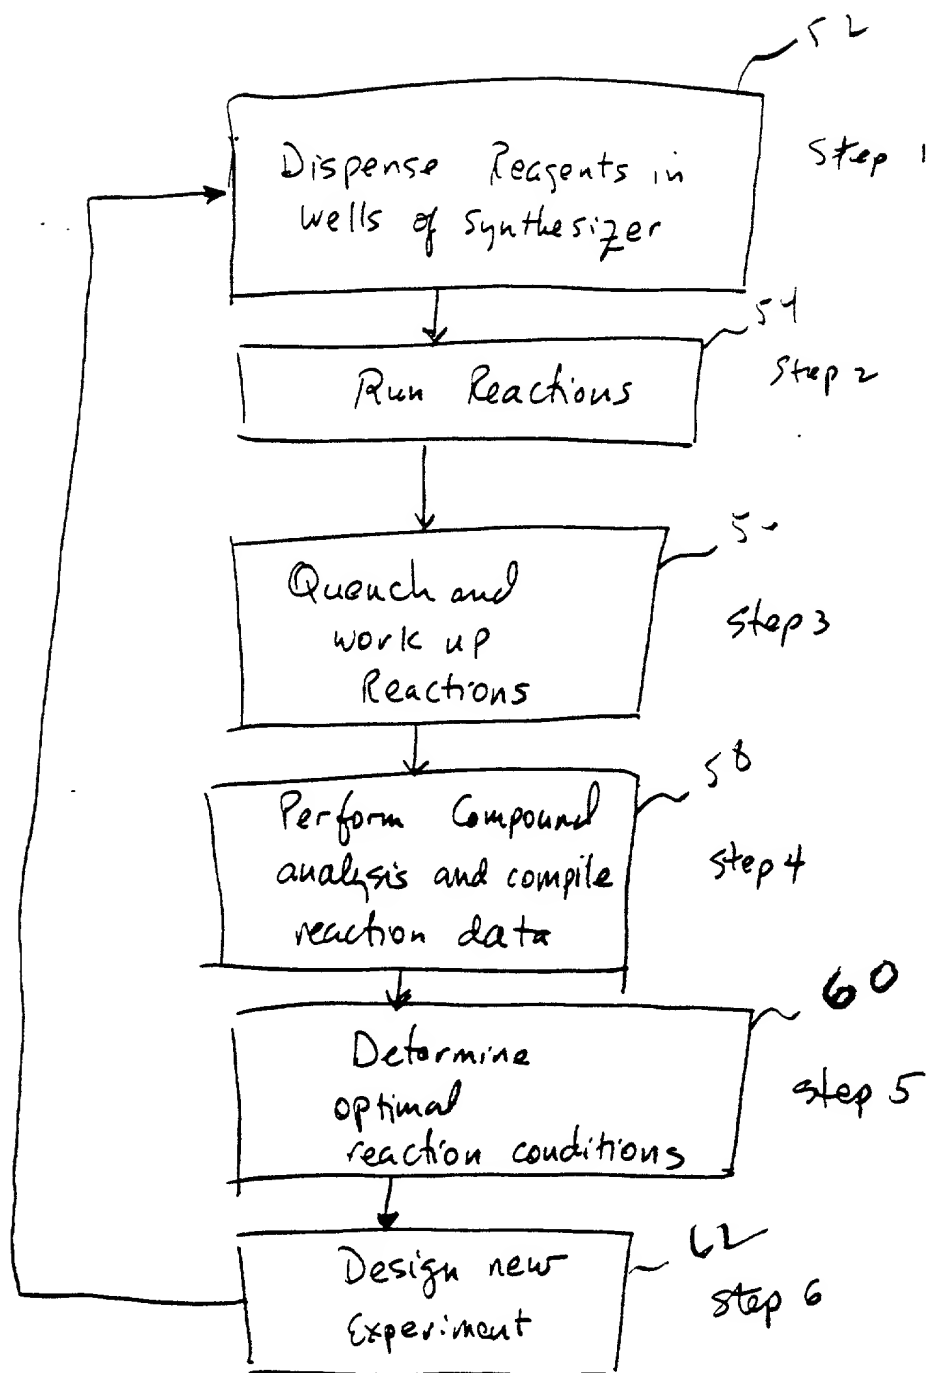 52
Dispense Reagents in
wells of synthesizer
Step 1
54
Run Reactions
Step 2
Quench and
work up
Reactions
Step 3
58
Perform Compound
analysis and compile
reaction data
Step 4
60
Determine
optimal
reaction conditions
Step 5
62
Design new
Experiment
Step 6